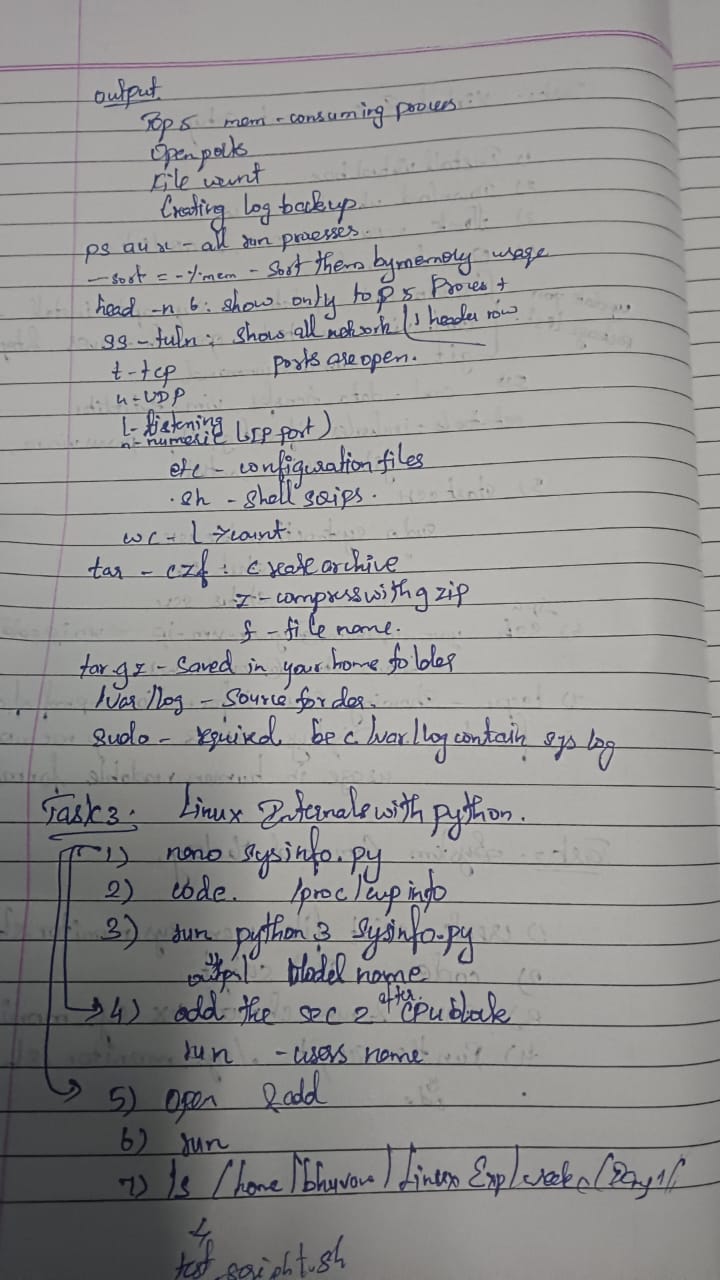 output
Top 5 mem - consuming process.
Open ports
File count
Creating log backup.
ps aux - all run processes.
--sort = -%mem - sort them by memory usage
head -n 6 : show only top 5 Proces +
1 header row
ss -tuln ; show all network
ports are open.
t - tcp
u - UDP
l - listening
n - numeric (IP port)
etc - configuration files
.sh - shell scrips.
wc -l → count.
tar - czf : create archive
z - compress with gzip
f - file name.
tar.gz - saved in your home folder
/var/log - source for der.
sudo - required be c /var/log contain sys log
Task 3. Linux Internals with python.
1) nano sysinfo.py
2) code. /proc/cup info
3) run python 3 sysinfo.py
Model name
4) add the sec 2 after CPU block
run - users name
5) open & add
6) run
7) ls /home/bhuvana/Linux Exp/week
test script.sh